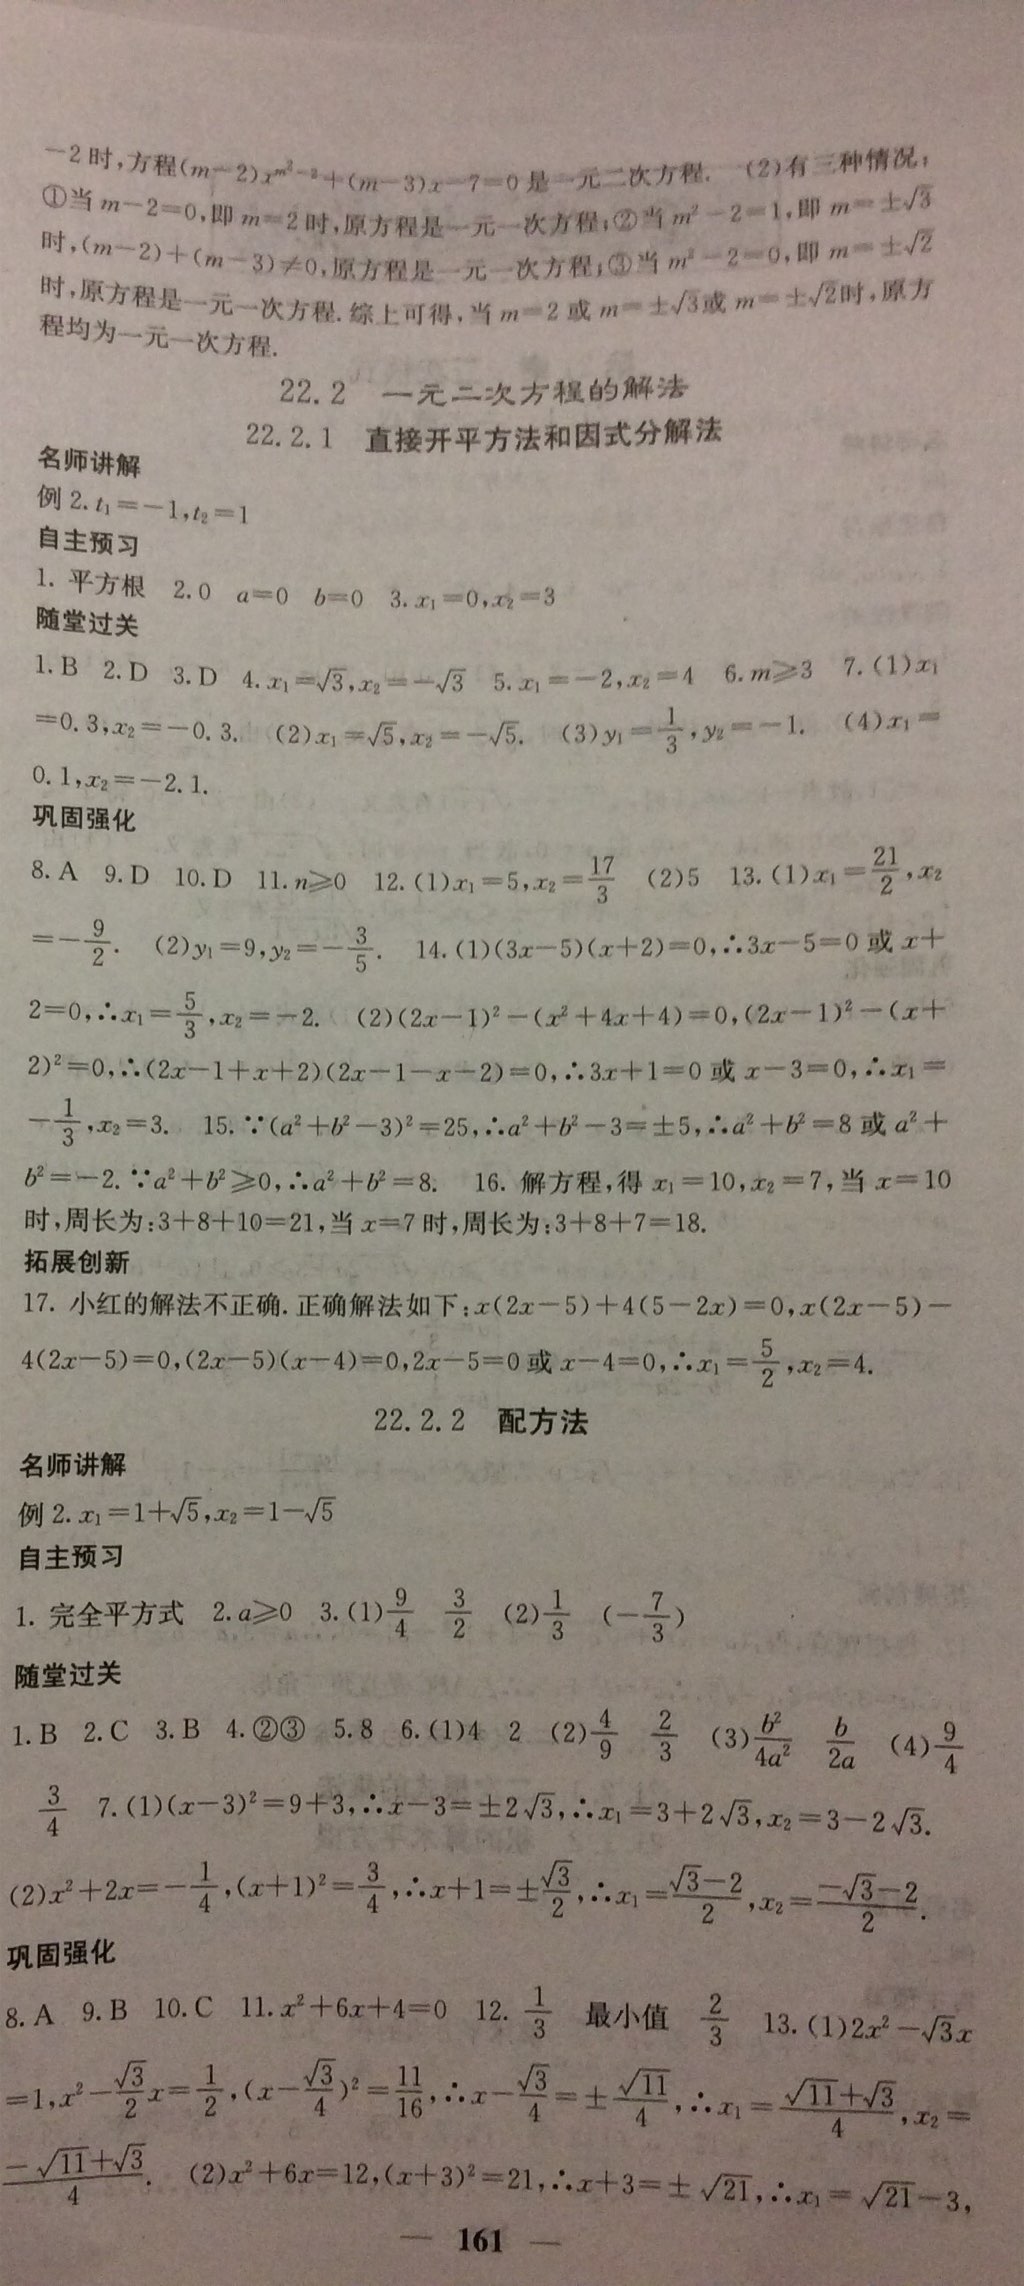 -2时,方程(m-2)x^{m²-2}+(m-3)x-7=0是一元二次方程. (2)有三种情况:
①当m-2=0,即m=2时,原方程是一元一次方程;②当m²-2=1,即m=±√3
时,(m-2)+(m-3)≠0,原方程是一元一次方程;③当m²-2=0,即m=±√2
时,原方程是一元一次方程.综上可得,当m=2或m=±√3或m=±√2时,原方
程均为一元一次方程.
22.2 一元二次方程的解法
22.2.1 直接开平方法和因式分解法
名师讲解
例2.t₁=-1,t₂=1
自主预习
1. 平方根 2.0 a=0 b=0 3.x₁=0,x₂=3
随堂过关
1.B 2.D 3.D 4.x₁=√3,x₂=-√3 5.x₁=-2,x₂=4 6.m⩾3 7.(1)x₁
=0.3,x₂=-0.3. (2)x₁=√5,x₂=-√5. (3)y₁=1/3,y₂=-1. (4)x₁=
0.1,x₂=-2.1.
巩固强化
8.A 9.D 10.D 11.n⩾0 12.(1)x₁=5,x₂=17/3 (2)5 13.(1)x₁=21/2,x₂
=-9/2. (2)y₁=9,y₂=-3/5. 14.(1)(3x-5)(x+2)=0,∴3x-5=0或x+
2=0,∴x₁=5/3,x₂=-2. (2)(2x-1)²-(x²+4x+4)=0,(2x-1)²-(x+
2)²=0,∴(2x-1+x+2)(2x-1-x-2)=0,∴3x+1=0或x-3=0,∴x₁=
-1/3,x₂=3. 15.∵(a²+b²-3)²=25,∴a²+b²-3=±5,∴a²+b²=8或a²+
b²=-2.∵a²+b²⩾0,∴a²+b²=8. 16. 解方程,得x₁=10,x₂=7,当x=10
时,周长为:3+8+10=21,当x=7时,周长为:3+8+7=18.
拓展创新
17. 小红的解法不正确.正确解法如下:x(2x-5)+4(5-2x)=0,x(2x-5)-
4(2x-5)=0,(2x-5)(x-4)=0,2x-5=0或x-4=0,∴x₁=5/2,x₂=4.
22.2.2 配方法
名师讲解
例2.x₁=1+√5,x₂=1-√5
自主预习
1. 完全平方式 2.a⩾0 3.(1)9/4 3/2 (2)1/3 (-7/3)
随堂过关
1.B 2.C 3.B 4.②③ 5.8 6.(1)4 2 (2)4/9 2/3 (3)b²/4a² b/2a (4)9/4
3/4 7.(1)(x-3)²=9+3,∴x-3=±2√3,∴x₁=3+2√3,x₂=3-2√3.
(2)x²+2x=-1/4,(x+1)²=3/4,∴x+1=±√3/2,∴x₁=(√3-2)/2,x₂=(-√3-2)/2.
巩固强化
8.A 9.B 10.C 11.x²+6x+4=0 12.1/3 最小值 2/3 13.(1)2x²-√3x
=1,x²-√3/2x=1/2,(x-√3/4)²=11/16,∴x-√3/4=±√11/4,∴x₁=(√11+√3)/4,x₂=
(-√11+√3)/4. (2)x²+6x=12,(x+3)²=21,∴x+3=±√21,∴x₁=√21-3,
— 161 —